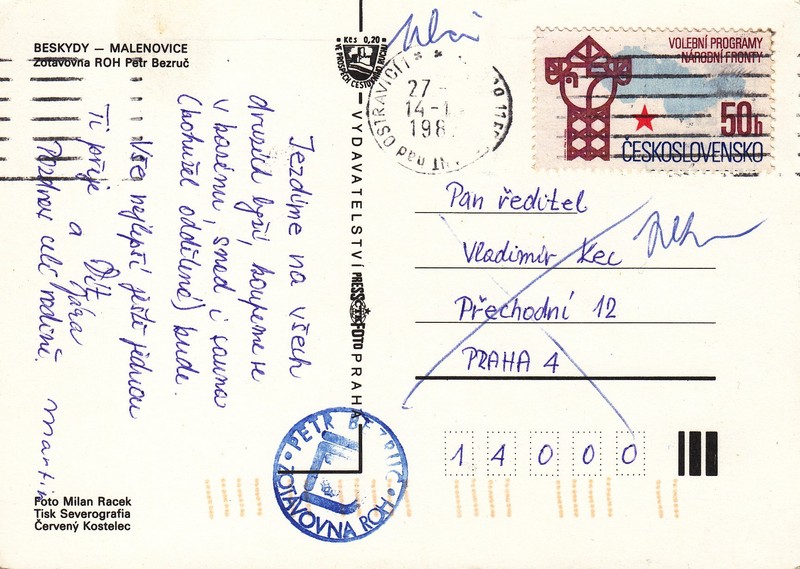 BESKYDY — MALENOVICE
Zotavovna ROH Petr Bezruč
Kčs 0,20
VE PROSPĚCH CESTOVNÍHO RUCHU
VOLEBNÍ PROGRAMY
NÁRODNÍ FRONTY
50h
ČESKOSLOVENSKO
27
14-1
198
nad OSTRAVICÍ 1
Jezdíme na všech
druzích lyží, koupeme se
v bazénu, snad i sauna
(bohužel oddělená) bude.
Vše nejlepší ještě jednou
Ti přeje a
Pozdrav celé rodině.
Martin
VYDAVATELSTVÍ PRESSFOTO PRAHA
Pan ředitel
Vladimír Kec
Přechodní 12
PRAHA 4
14000
PETR BEZRUČ
ZOTAVOVNA ROH
Foto Milan Racek
Tisk Severografia
Červený Kostelec